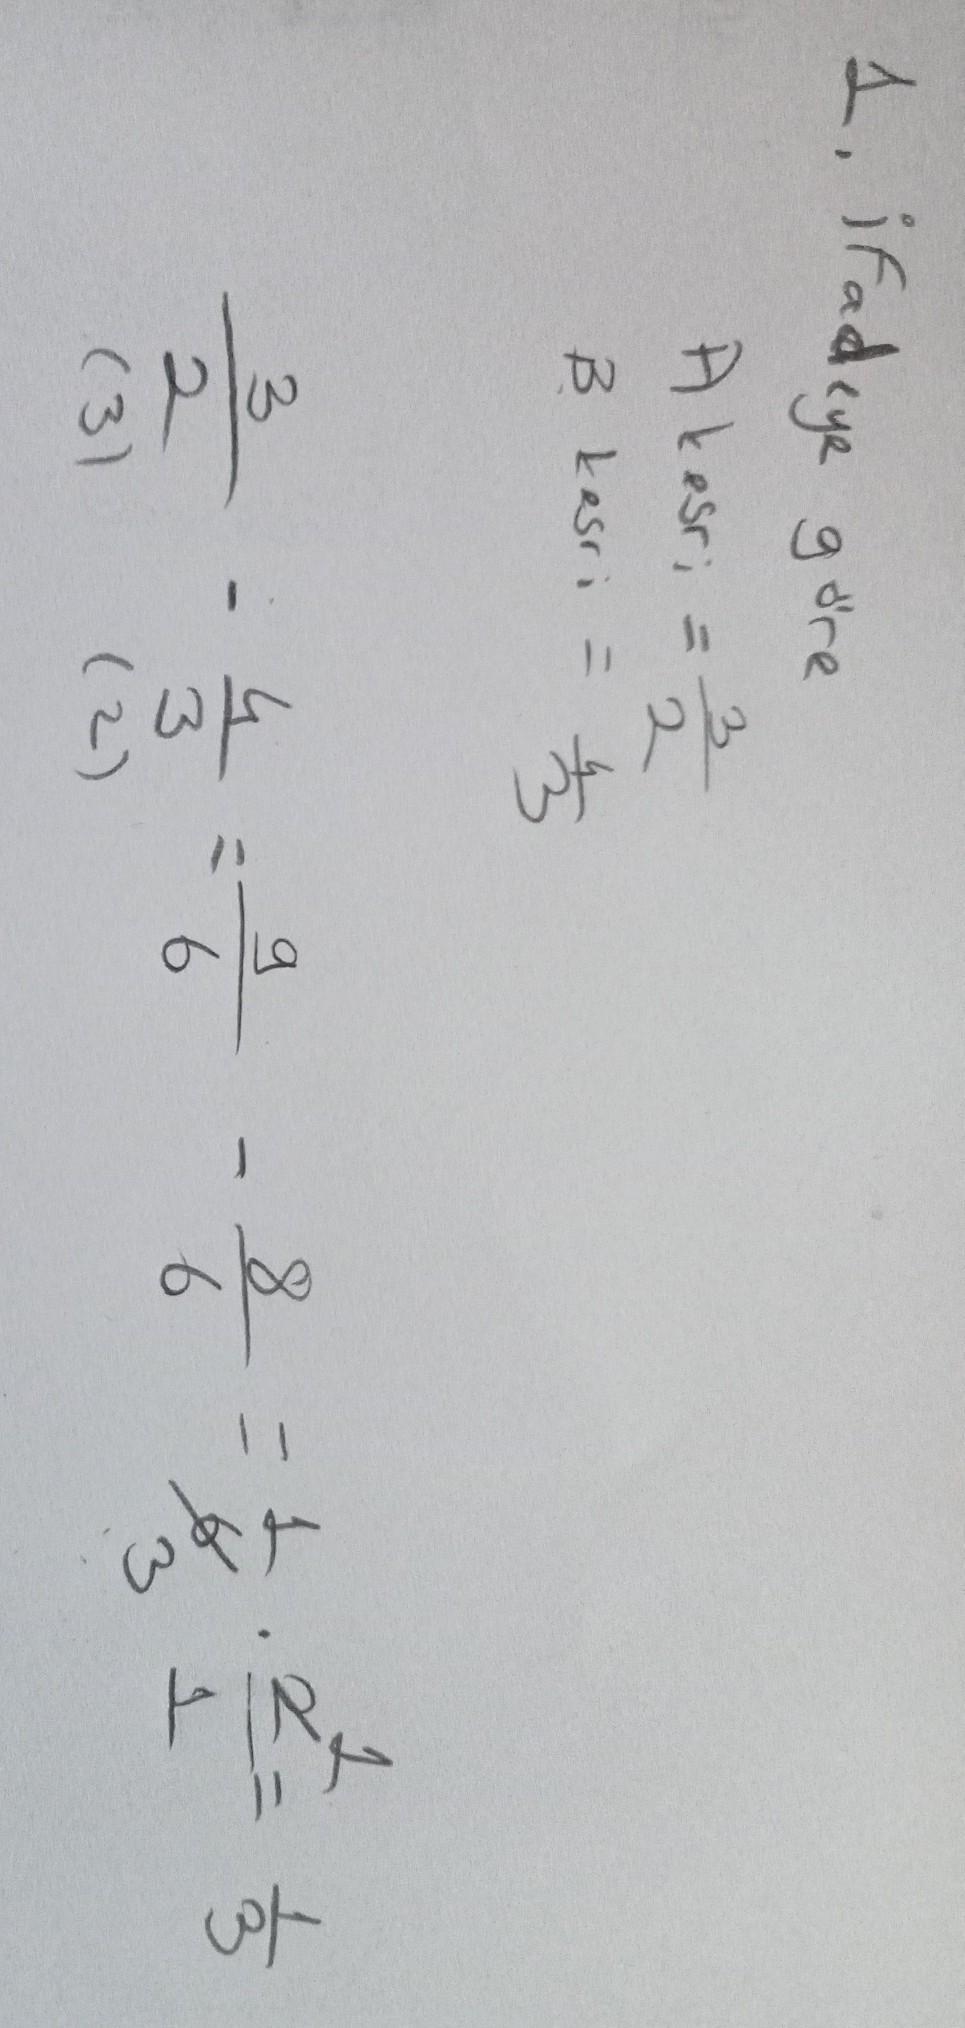 1. ifadeye göre
A kesri = 3/2
B kesri = 4/3
3/2 - 4/3 = 9/6 - 8/6 = 1/6 . 2/1 = 1/3
(3) (2) 3 1